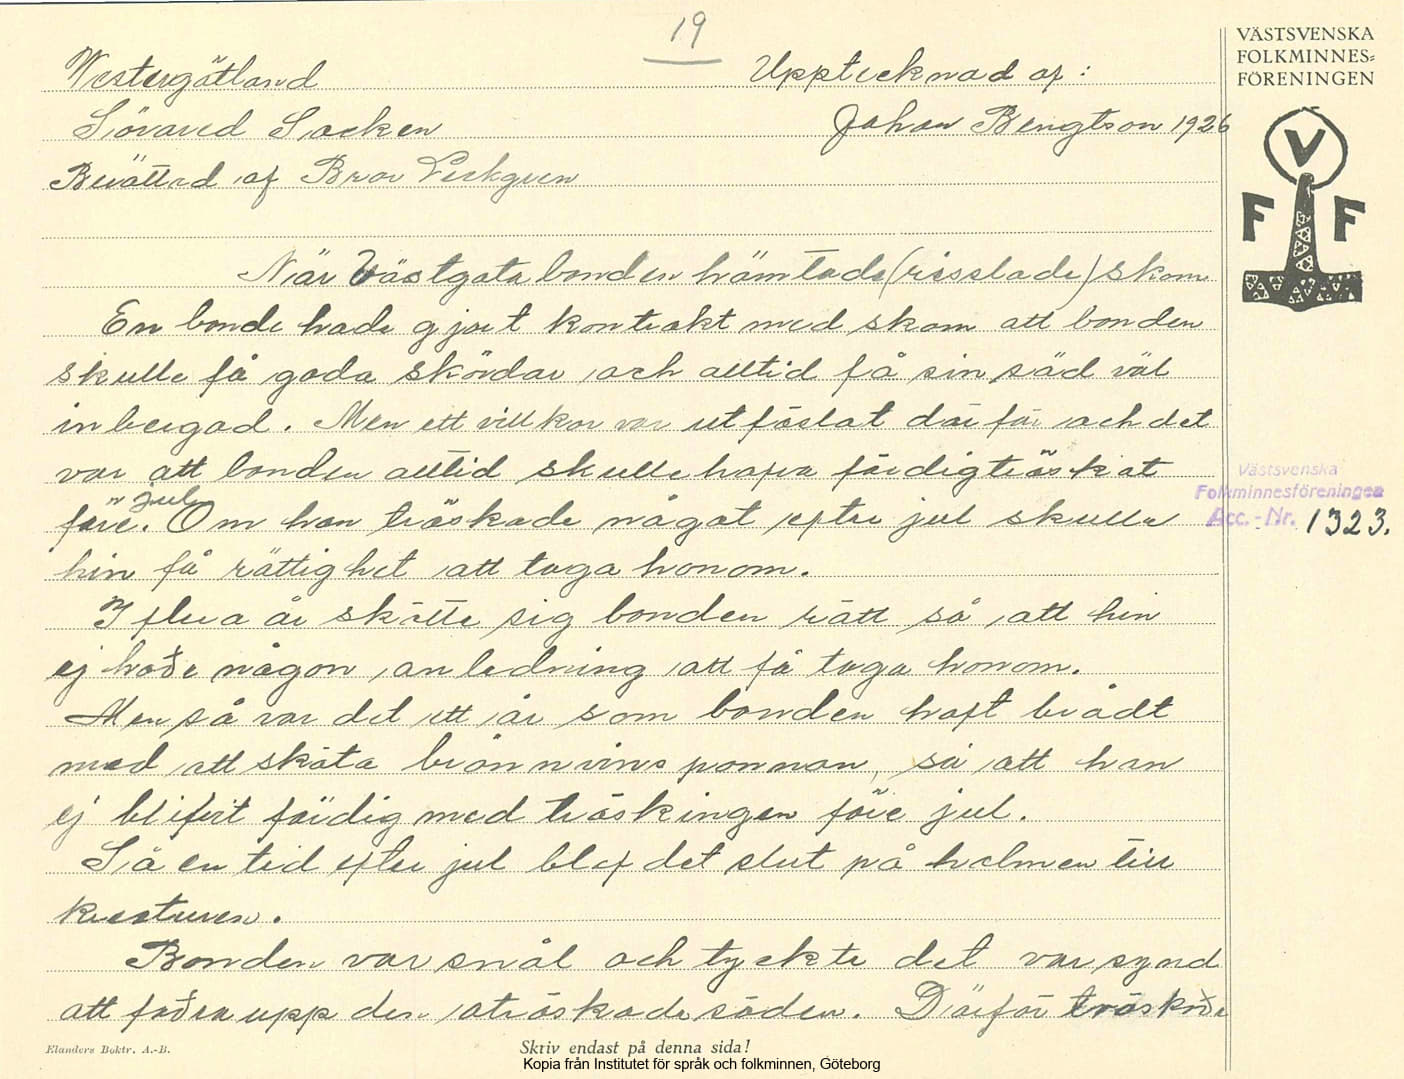 19
VÄSTSVENSKA
FOLKMINNES=
FÖRENINGEN
V
F F
Westergötland Upptecknad af:
Sövared Socken Johan Bengtson 1926
Berättad af Bror
När Västgötabonden hämtade (risslade) skam
En bonde hade gjort kontrakt med skam att bonden
skulle få goda skördar och alltid få sin säd väl
inbergad. Men ett villkor var utfäslat därför och det
var att bonden alltid skulle hafva färdigtröskat
före jul. Om han tröskade något efter jul skulle
hin få rättighet att taga honom.
I flera år skötte sig bonden rätt så att hin
ej hade någon anledning att få taga honom.
Men så var det ett år som bonden haft brådt
med att sköta brännvins pannan, så att han
ej blifvit färdig med tröskingen före jul.
Så en tid efter jul blef det slut på halmen till
kreaturen.
Bonden var snål och tyckte det var synd
att fodra upp den otröskade säden. Därför tröskade
Västsvenska
Folkminnesföreningen
Acc.-Nr. 1323.
Elanders Boktr. A.-B.
Skriv endast på denna sida!
Kopia från Institutet för språk och folkminnen, Göteborg